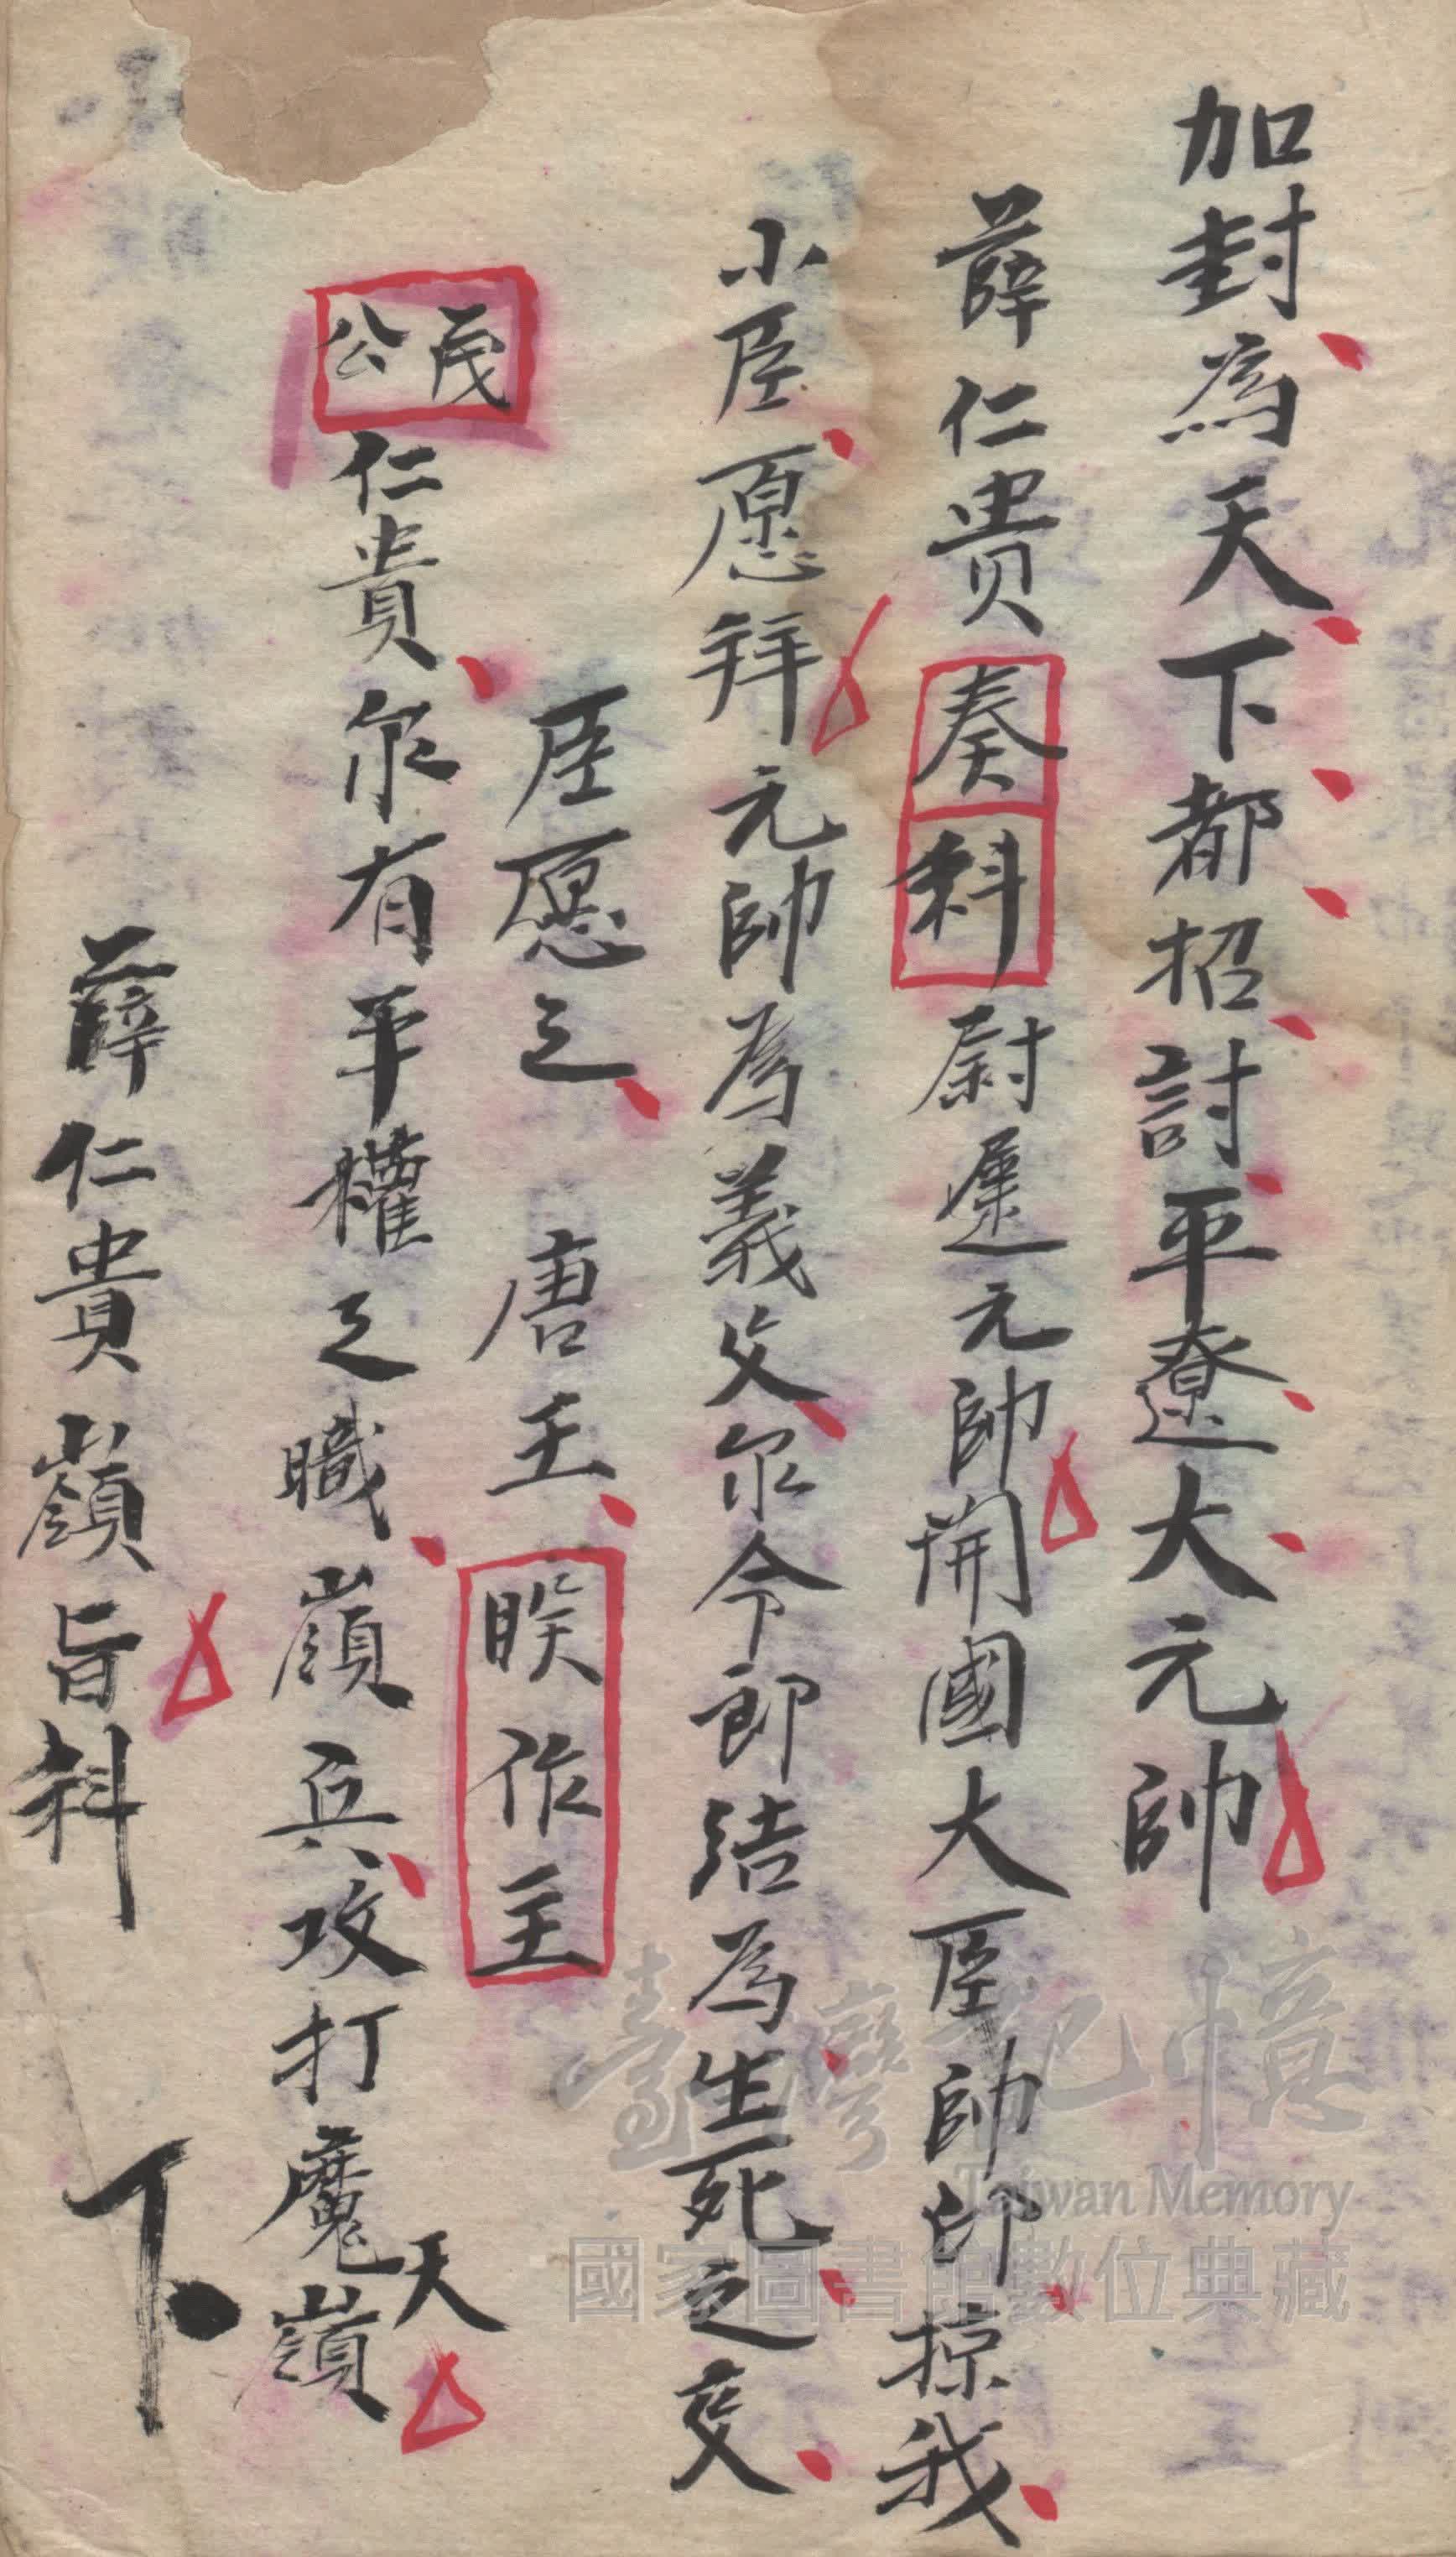 加封為天下都招討平遼大元帥
薛仁贵奏科尉遲元帥開國大臣帥印掠我
小臣愿拜元帥為義父尔令郎結為生死之交
臣愿之 唐王 朕作主
茂公 仁貴尔有平權之職嶺兵攻打魔天嶺
薛仁貴嶺旨科 下
臺灣記憶
Taiwan Memory
國家圖書館數位典藏